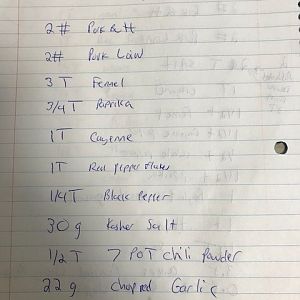 2# Pork Butt
2# Pork Loin
3 T Fennel
3/4 T Paprika
1T Cayenne
1T Red Pepper Flakes
1/4 T Black Pepper
30 g Kosher Salt
1/2 T 7 POT Chili Powder
22 g chopped Garlic